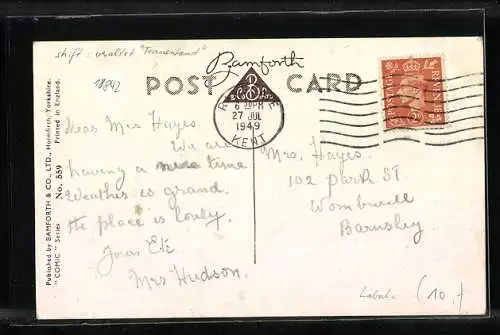 Bamforth
POST CARD
18842
6 PM
27 JUL
1949
KENT
POSTAGE
REVENUE
Dear Mrs Hayes.
We are
having a nice time
Weather is grand.
the place is lovly.
Yours Etc
Mrs Hudson.
Mrs. Hayes.
102 Park St.
Wombwell
Barnsley
(10,-)
Published by BAMFORTH & CO., LTD., Holmfirth, Yorkshire.
"COMIC" Series No. 559 Printed in England.